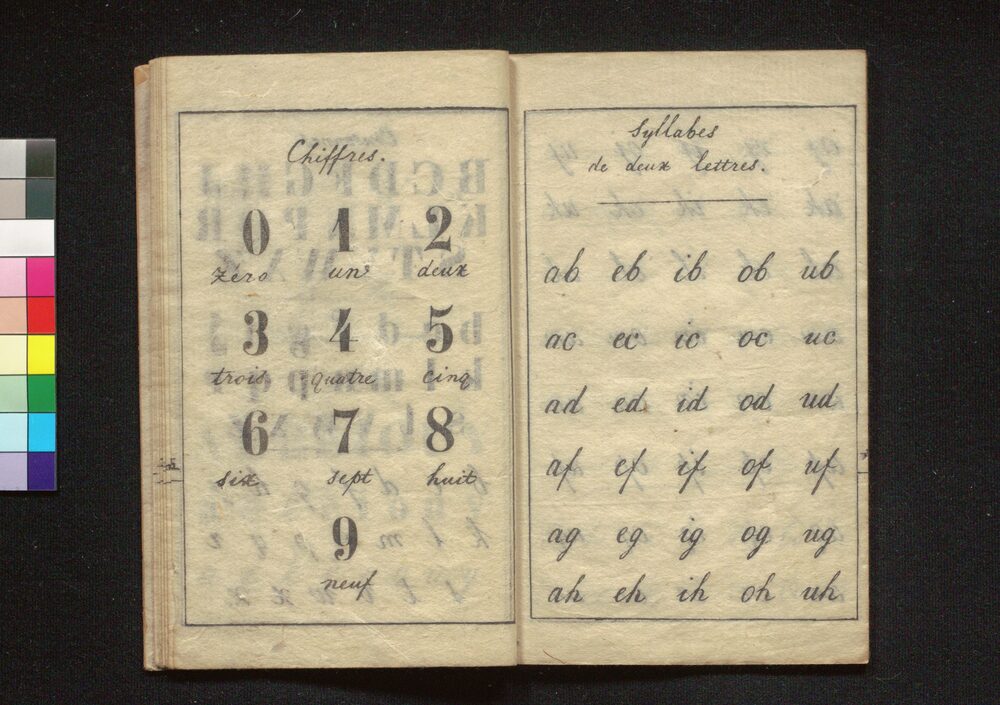 Chiffres.
0 1 2
zéro un deux
3 4 5
trois quatre cinq
6 7 8
six sept huit
9
neuf
Syllabes
de deux lettres.
ab eb ib ob ub
ac ec ic oc uc
ad ed id od ud
af ef if of uf
ag eg ig og ug
ah eh ih oh uh